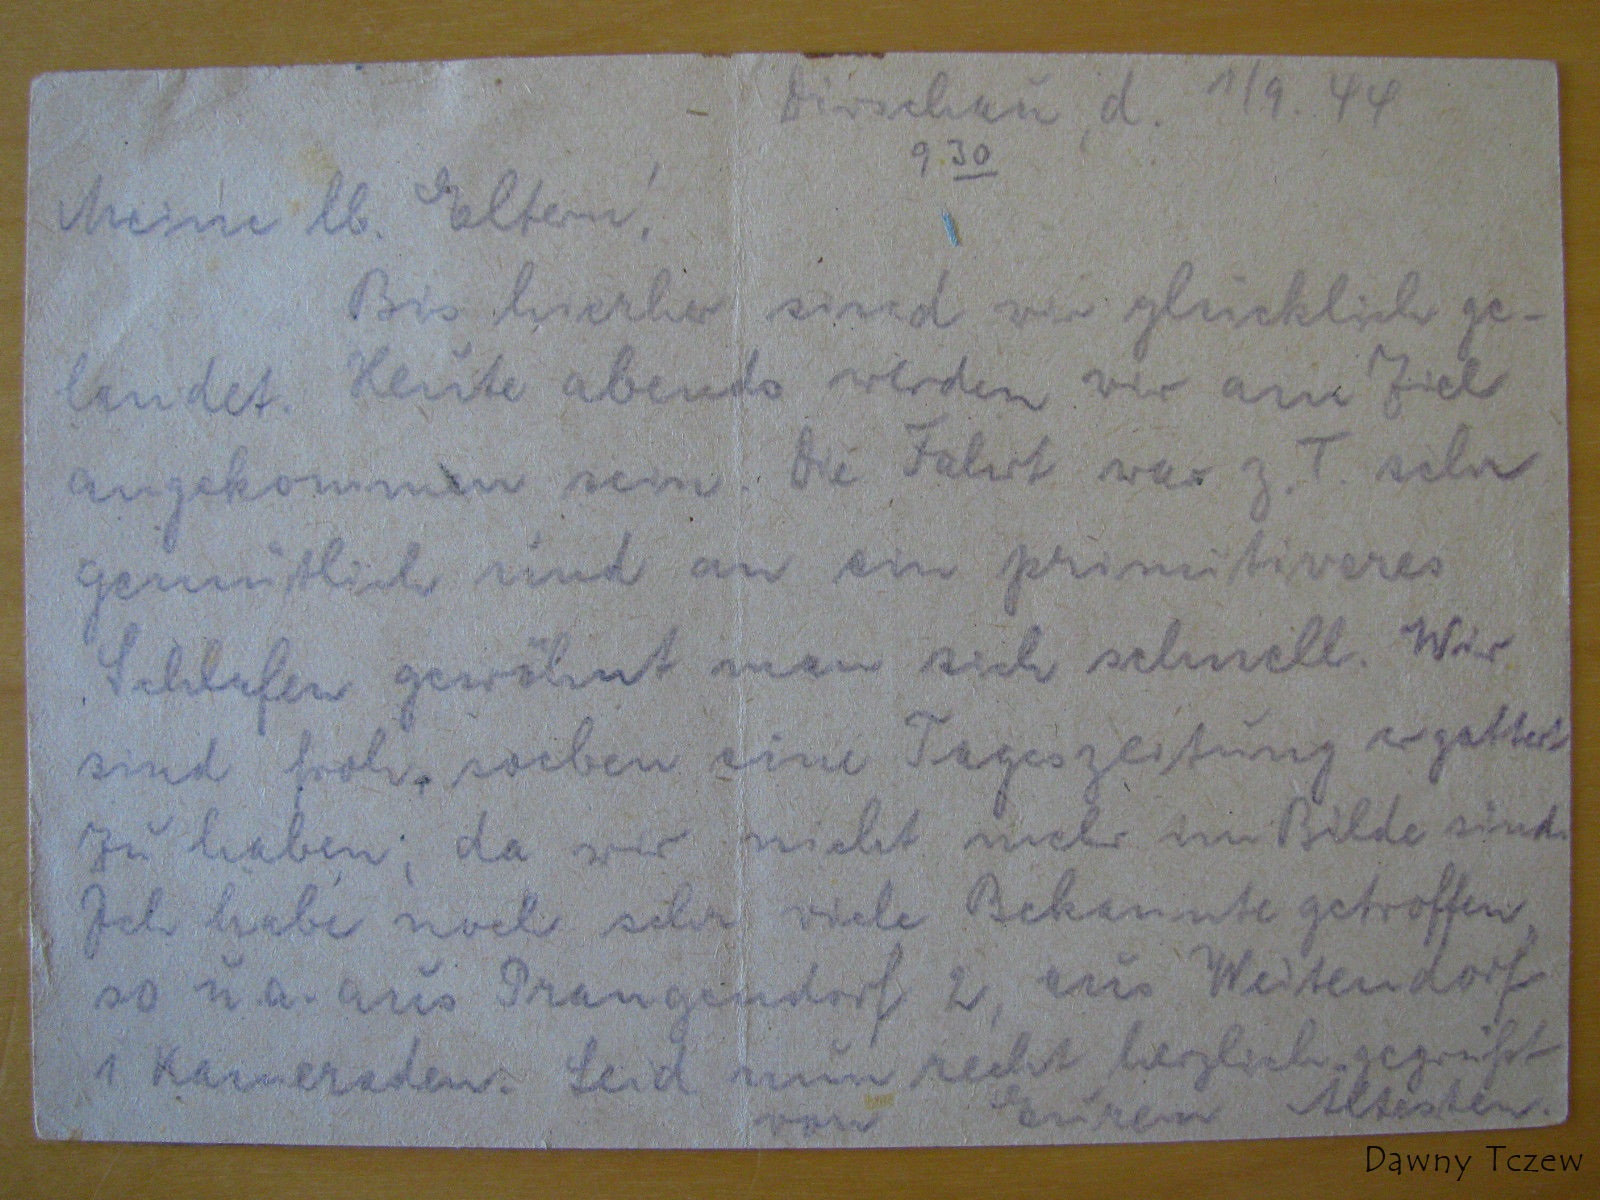 Dirschau, d. 1/9. 44
9 30
Meine lb. Eltern!
Bis hierher sind wir glücklich ge-
landet. Heute abends werden wir am Ziel
angekommen sein. Die Fahrt war z. T. sehr
gemütlich und an ein primitiveres
Schlafen gewöhnt man sich schnell. Wir
sind froh, soeben eine Tageszeitung ergattert
zu haben, da wir nicht mehr im Bilde sind.
Ich habe noch sehr viele Bekannte getroffen,
so u. a. aus Prangendorf 2, aus Weitendorf
1 Kameraden. Seid nun recht herzlich gegrüßt
von Eurem Ältesten.
Dawny Tczew